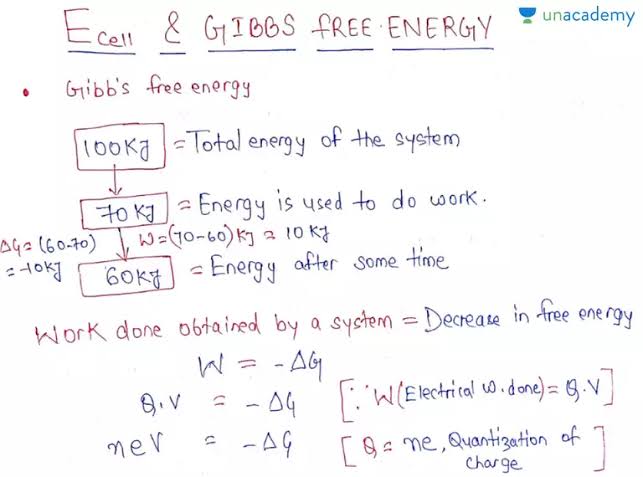 Ecell & GIBBS FREE ENERGY
unacademy
• Gibb's free energy
100KJ = Total energy of the system
70 KJ = Energy is used to do work.
ΔG = (60-70) W = (70-60) KJ = 10 KJ
= -10KJ
60KJ = Energy after some time
Work done obtained by a system = Decrease in free energy
W = -ΔG
Q.V = -ΔG [∵ W(Electrical w.done) = Q.V]
neV = -ΔG [Q = ne, Quantization of charge]